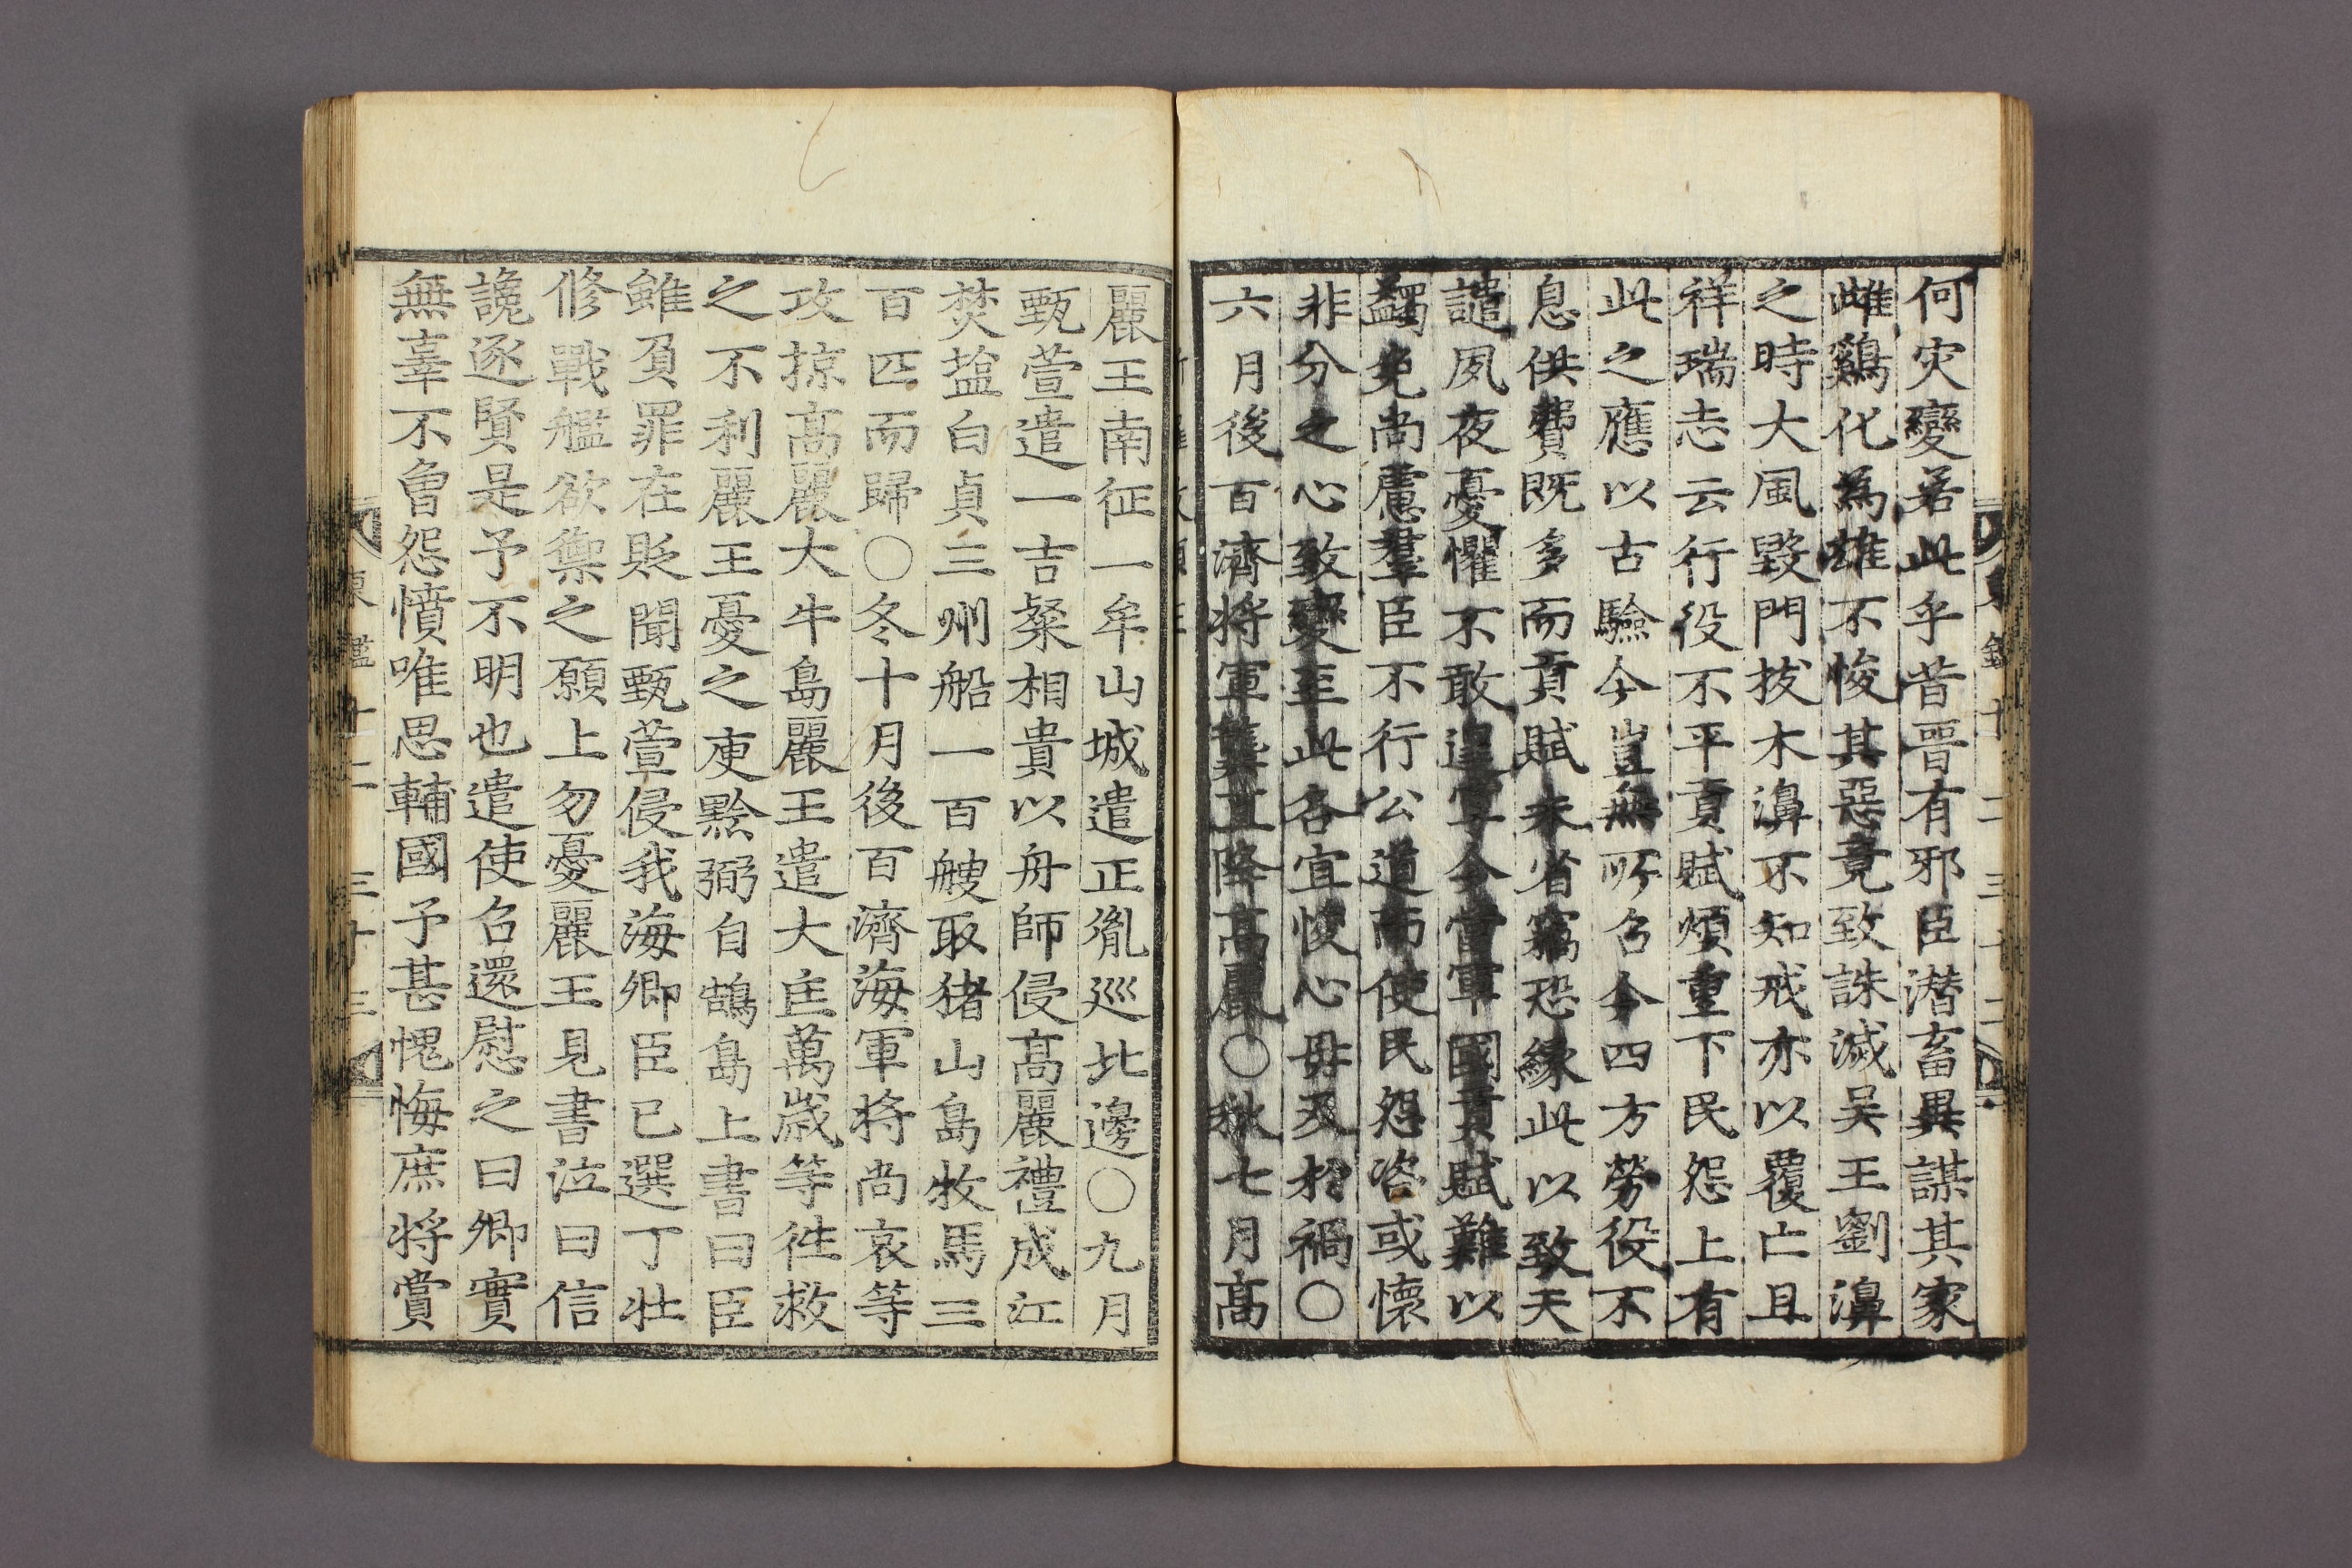 何灾變若此乎昔晋有邪臣潜畜異謀其家
雌鷄化為雄不悛其惡竟致誅滅吴王劉濞
之時大風毀門拔木濞不知戒亦以覆亡且
祥瑞志云行役不平貢賦煩重下民怨上有
此之應以古驗今豈無所召今四方勞役不
息供費既多而貢賦未省竊恐緣此以致天
譴夙夜憂懼不敢遑寧今當軍國貢賦難以
蠲免尚慮羣臣不行公道而使民怨咨或懷
非分之心致變至此各宜悛心毋及於禍〇
六月後百濟將軍龔直降高麗〇秋七月高
麗王南征一牟山城遣正胤巡北邊〇九月
甄萱遣一吉粲相貴以舟師侵高麗禮成江
焚塩白貞三州船一百艘取猪山島牧馬三
百匹而歸〇冬十月後百濟海軍将尚哀等
攻掠高麗大牛島麗王遣大匡萬歲等往救
之不利麗王憂之庾黔弼自鵠島上書曰臣
雖負罪在貶聞甄萱侵我海鄉臣已選丁壯
修戰艦欲禦之願上勿憂麗王見書泣曰信
讒逐賢是予不明也遣使召還慰之曰卿實
無辜不曾怨憤唯思輔國予甚愧悔庶将賞
東鑑十二 三十三